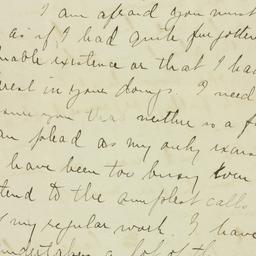 I am afraid you must
as if I had quite forgotten
uable existence or that I had
rest in your doings. I need
sure you tha neither is a f
an plead as my only excuse
have been too busy even
tend to the simplest calls
my regular work. I have
undertaken a lot of th